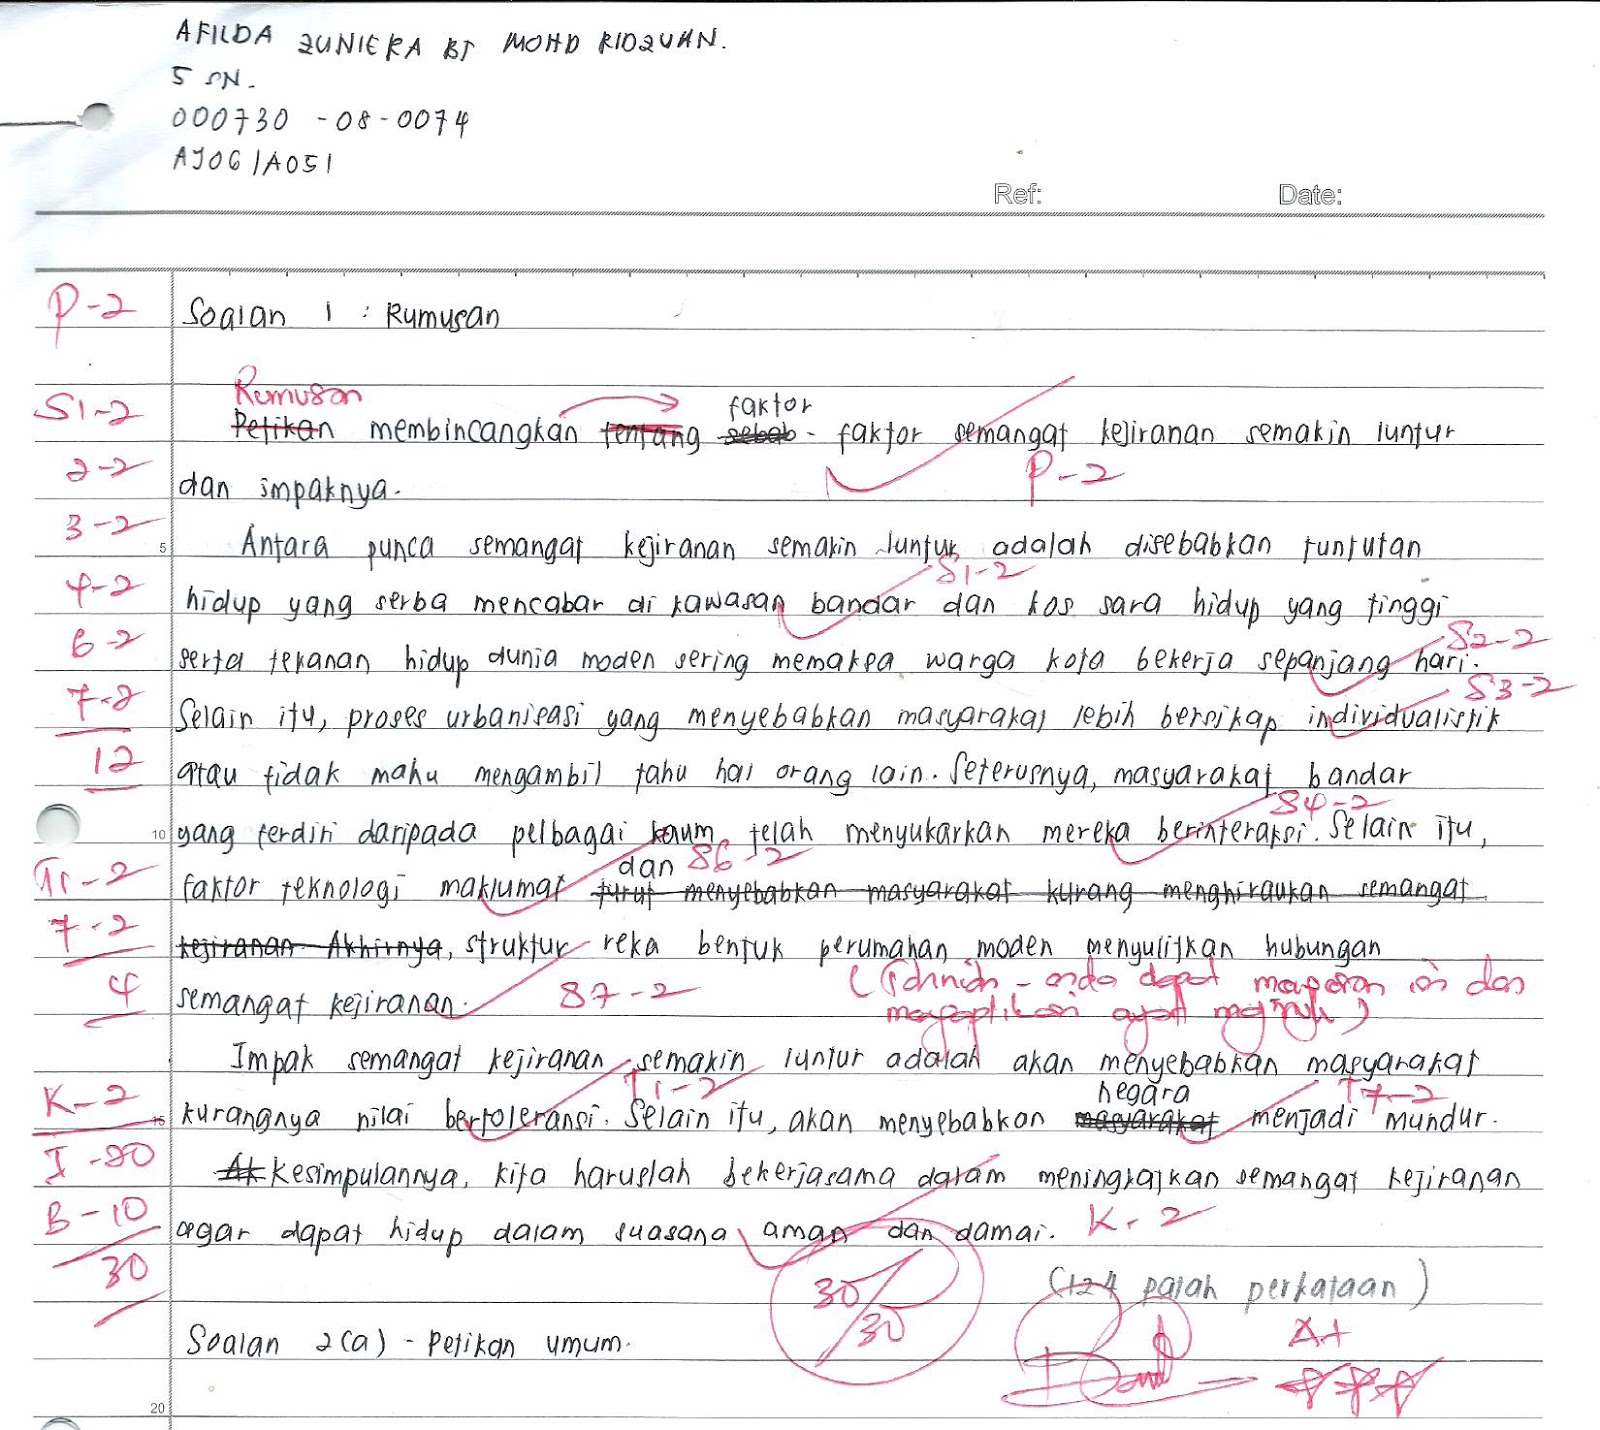 AFILDA ZUNIERA BT MOHD RIDZUAN.
5 SN.
000730 -08-0074
AJ06/A051
Ref: Date:
P-2 Soalan 1 : Rumusan
Rumusan
S1-2 faktor
Petikan membincangkan tentang sebab - faktor semangat kejiranan semakin luntur
2-2 dan impaknya. P-2
3-2 5 Antara punca semangat kejiranan semakin luntur adalah disebabkan tuntutan
S1-2
4-2 hidup yang serba mencabar di kawasan bandar dan kos sara hidup yang tinggi
S2-2
6-2 serta tekanan hidup dunia moden sering memaksa warga kota bekerja sepanjang hari.
S3-2
7-2 Selain itu, proses urbanisasi yang menyebabkan masyarakat lebih bersikap individualistik
12 atau tidak mahu mengambil tahu hal orang lain. Seterusnya, masyarakat bandar
S4-2
10 yang terdiri daripada pelbagai kaum telah menyukarkan mereka berinteraksi. Selain itu,
dan S6-2
Tr-2 faktor teknologi maklumat turut menyebabkan masyarakat kurang menghiraukan semangat
7-2 kejiranan Akhirnya, struktur reka bentuk perumahan moden menyulitkan hubungan
4 semangat kejiranan. S7-2 anda dapat isi dan
ayat
Impak semangat kejiranan semakin luntur adalah akan menyebabkan masyarakat
T1-2 negara T7-2
K-2 15 kurangnya nilai bertoleransi. Selain itu, akan menyebabkan masyarakat menjadi mundur.
I-20 Ak Kesimpulannya, kita haruslah bekerjasama dalam meningkatkan semangat kejiranan
B-10 agar dapat hidup dalam suasana aman dan damai. K-2
30 30/30 (124 patah perkataan)
Soalan 2(a) - Petikan umum. A+
20